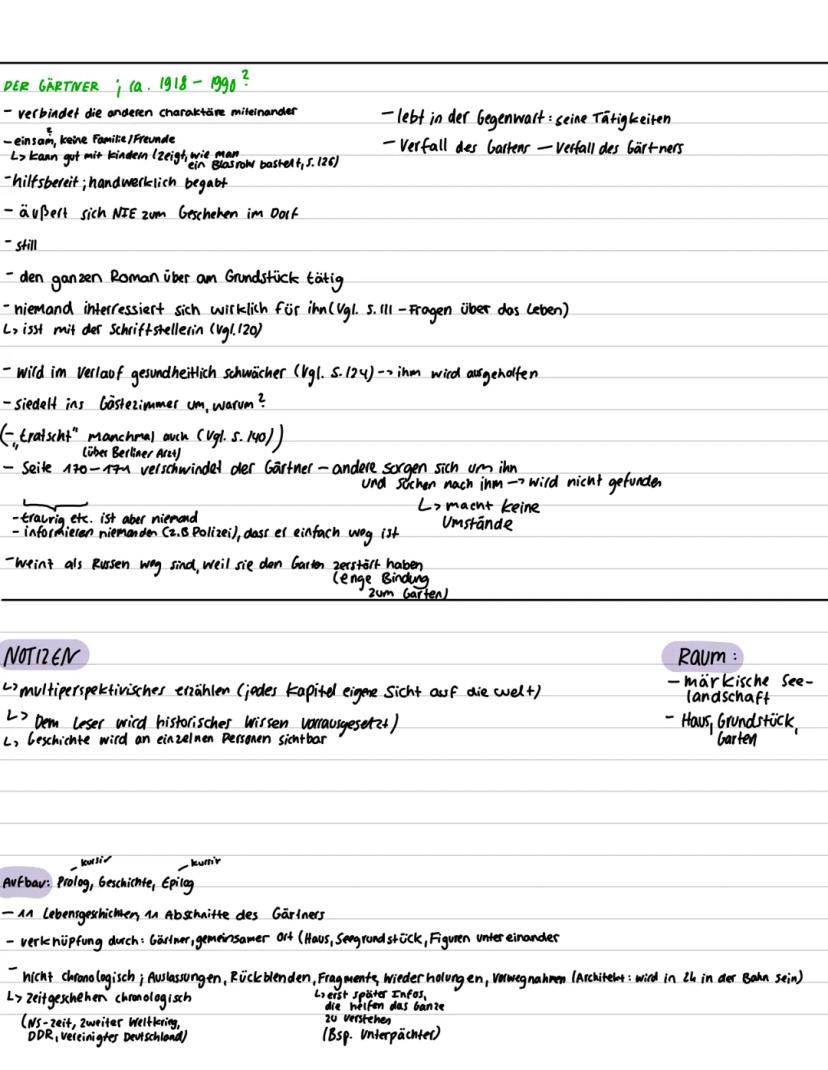 DER GÄRTNER ; ca. 1918 – 1990?
- verbindet die anderen charaktäre miteinander
- einsam, keine Familie/Freunde
?
↳ kann gut mit kindern (zeigt, wie man
ein Blasrohr bastelt, S. 126)
- hilfsbereit ; handwerklich begabt
- äußert sich NIE zum Geschehen im Dorf
- still
- den ganzen Roman über am Grundstück tätig
- niemand interressiert sich wirklich für ihn (Vgl. S. 111 – Fragen über das Leben)
↳ isst mit der Schriftstellerin (Vgl. 120)
- wird im Verlauf gesundheitlich schwächer (Vgl. S. 124) --> ihm wird ausgeholfen
- siedelt ins Gästezimmer um, warum?
(- „tratscht" manchmal auch (Vgl. S. 140))
(über Berliner Arzt)
- Seite 170-171 verschwindet der Gärtner – andere sorgen sich um ihn
und suchen nach ihm -> wird nicht gefunden
↳ macht keine
Umstände
- traurig etc. ist aber niemand
- informieren niemanden (z.B Polizei), dass er einfach weg ist
- weint als Russen weg sind, weil sie den Garten zerstört haben
(enge Bindung
zum Garten)
- lebt in der Gegenwart : seine Tätigkeiten
- Verfall des Gartens – Verfall des Gärtners
NOTIZEN
↳ multiperspektivisches erzählen (jedes Kapitel eigene Sicht auf die welt)
↳ Dem Leser wird historisches Wissen vorrausgesetzt)
↳ Geschichte wird an einzelnen Personen sichtbar
Raum :
- märkische See-
landschaft
- Haus, Grundstück,
Garten
kursiv
kursiv
Aufbau: Prolog, Geschichte, Epilog
- 11 Lebensgeschichten, 11 Abschnitte des Gärtners
- verknüpfung durch: Gärtner, gemeinsamer Ort (Haus, Seegrundstück, Figuren untereinander
- nicht chronologisch ; Auslassungen, Rückblenden, Fragmente, Wiederholungen, Vorwegnahmen (Architekt : wird in 2h in der Bahn sein)
↳ Zeitgeschehen chronologisch
(NS-Zeit, zweiter Weltkrieg,
DDR, vereinigtes Deutschland)
↳ erst später Infos,
die helfen das Ganze
zu verstehen
(Bsp. Unterpächter)